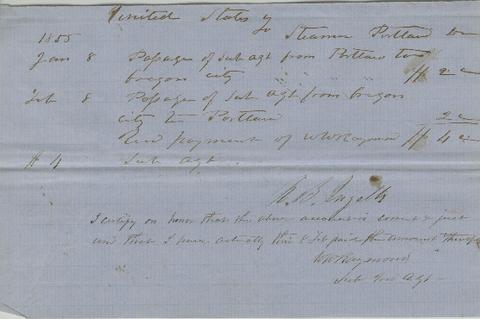 United States
1855 Steamer Portland Dr
Jan 8 Passage of Sub Agt from Portland to
Oregon city " " " $ 2 00
Feb 8 Passage of Sub Agt from Oregon
city to Portland 2 00
payment of WW Raymond $ 4 00
$ 4 Sub Agt.
A. B. Ingalls
I certify on honor that the above account is correct & just
and that I have actually this 8 Feb paid the amount thereof
WW Raymond
Sub Ind Agt